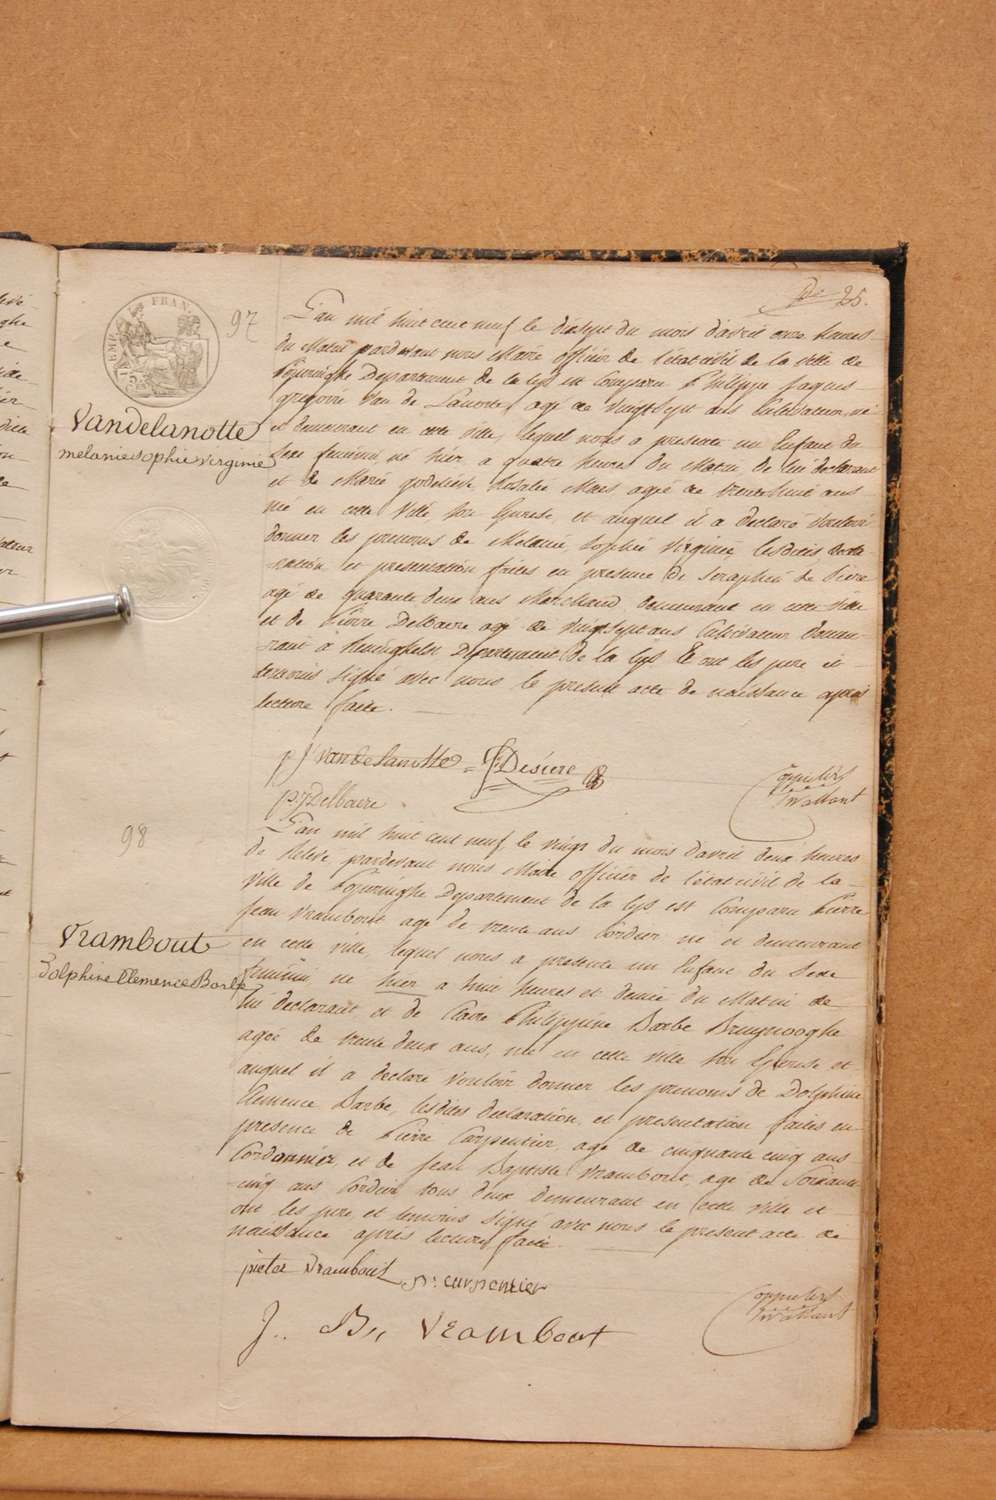 25.
97
Vandelanotte
melanie sophie virginie
L'an mil huit cent neuf le dixsept du mois d'avril onze heures
du Matin pardevant nous Maire officier de l'état civil de la ville de
Poperinghe Departement de la Lys est Comparu Philippe Jaques
gregoire Van de Lanotte, agé de vingtsept ans Cultivateur, né
et demeurant en cette ville, lequel nous a presenté un Enfant du
Sexe feminin né hier a quatre heures du Matin, de lui declarant
et de Marie godelieve Rosalie Maes agée de trente huit ans
née en cette Ville son Epouse, et auquel il a declaré vouloir
donner les prenoms de Melanie, Sophie Virginie, lesdites decla-
ration et presentation faites en presence de Seraphin de Sière
agé de quarante deux ans Marchand demeurant en cette ville
et de Pierre Delbaere agé de vingtsept ans Cultivateur demeu-
rant à Reninghelst Departement de la Lys & ont les pere et
temoins signé avec nous le present acte de naissance après
lecture faite.
p J vandelanotte
Desiere
pJ Delbaere
98
Vrambout
Dolphine Clemence Barbe
L'an mil huit cent neuf le vingt du mois d'avril deux heures
de Relevé pardevant nous Maire officier de l'état civil de la
Ville de Poperinghe Departement de la Lys est Comparu Pierre
Jean Vrambout agé de trente ans Cordier né et demeurant
en cette ville, lequel nous a presenté un Enfant du Sexe
feminin, né hier a huit heures et demie du Matin de
lui declarant et de Claire Philippine Barbe Bruynooghe
agée de trente deux ans, née en cette ville son Epouse, et
auquel il a declaré vouloir donner les prenoms de Dolphine
Clemence Barbe, lesdites declaration et presentation faites en
presence de Pierre Carpentier agé de cinquante cinq ans
Cordonnier, et de Jean Baptiste Vrambout, agé de Soixante
cinq ans Cordier, tous deux demeurant en cette ville et
ont les pere et temoins signé avec nous le present acte de
naissance après lecture faite.
pieter vrambout
pr carpentier
J. B. Vrambout